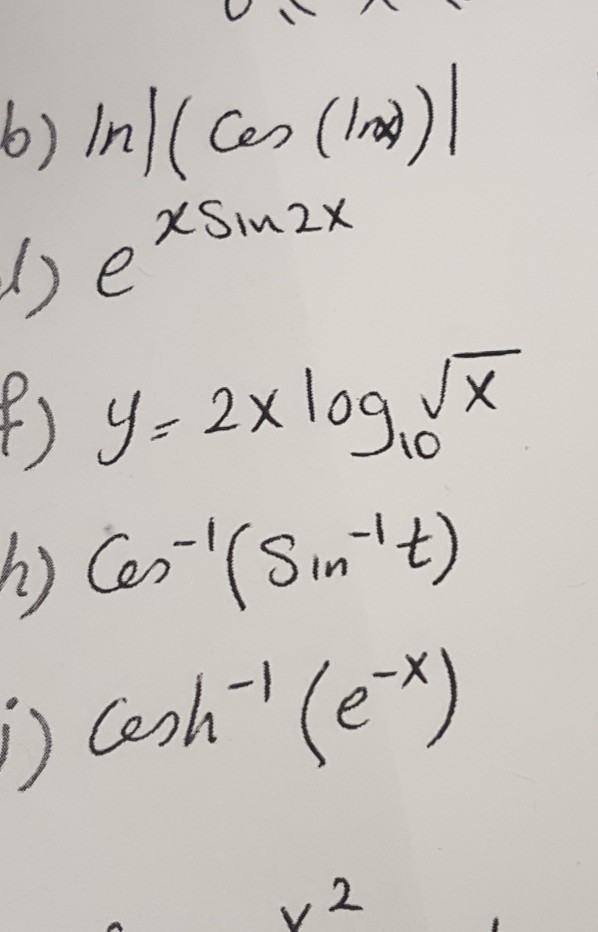 b) ln|(Cos (lnx))|
d) e^{x Sin 2x}
f) y = 2x log₁₀ √x
h) Cos⁻¹(Sin⁻¹t)
j) Cosh⁻¹(e⁻ˣ)